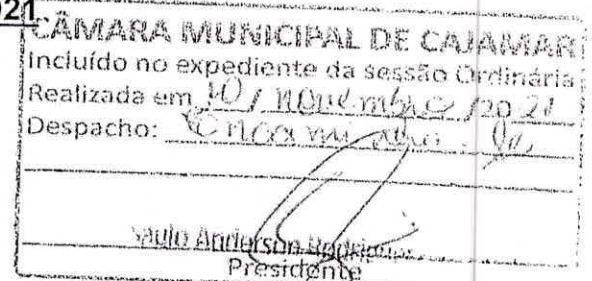 021
CÂMARA MUNICIPAL DE CAJAMAR
Incluído no expediente da sessão Ordinária
Realizada em 10 / novembro / 2021
Despacho:
Anderson
Presidente